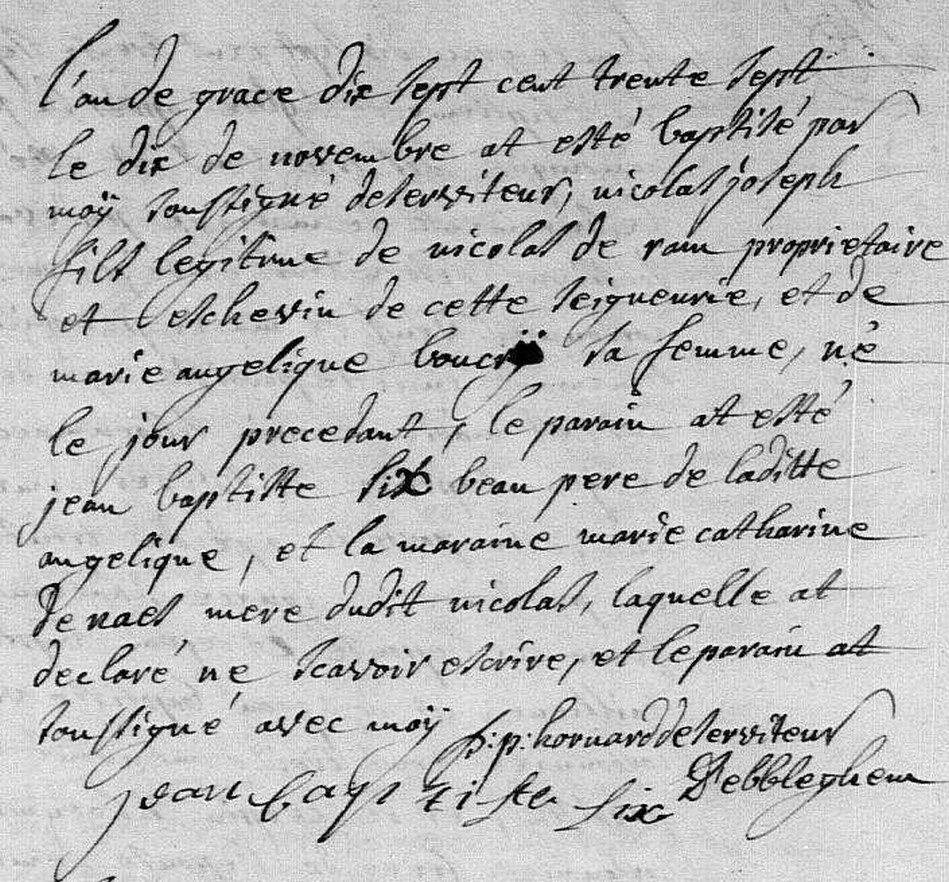 l'an de grace dix sept cent trente sept
le dix de novembre at esté baptisé par
moÿ soussigné deserviteur, nicolas joseph
fils legitime de nicolas de ram proprietaire
et eschevin de cette seigneurie, et de
marie angelique boucrÿ sa femme, né
le jour precedant, le parain at esté
jean baptiste six beau pere de laditte
angelique, et la maraine marie catharine
de naes mere dudit nicolas, laquelle at
declaré ne scavoir escrire, et le parain at
soussigné avec moÿ p: hornard deserviteur
Debbleghem
jean bap ti ste six